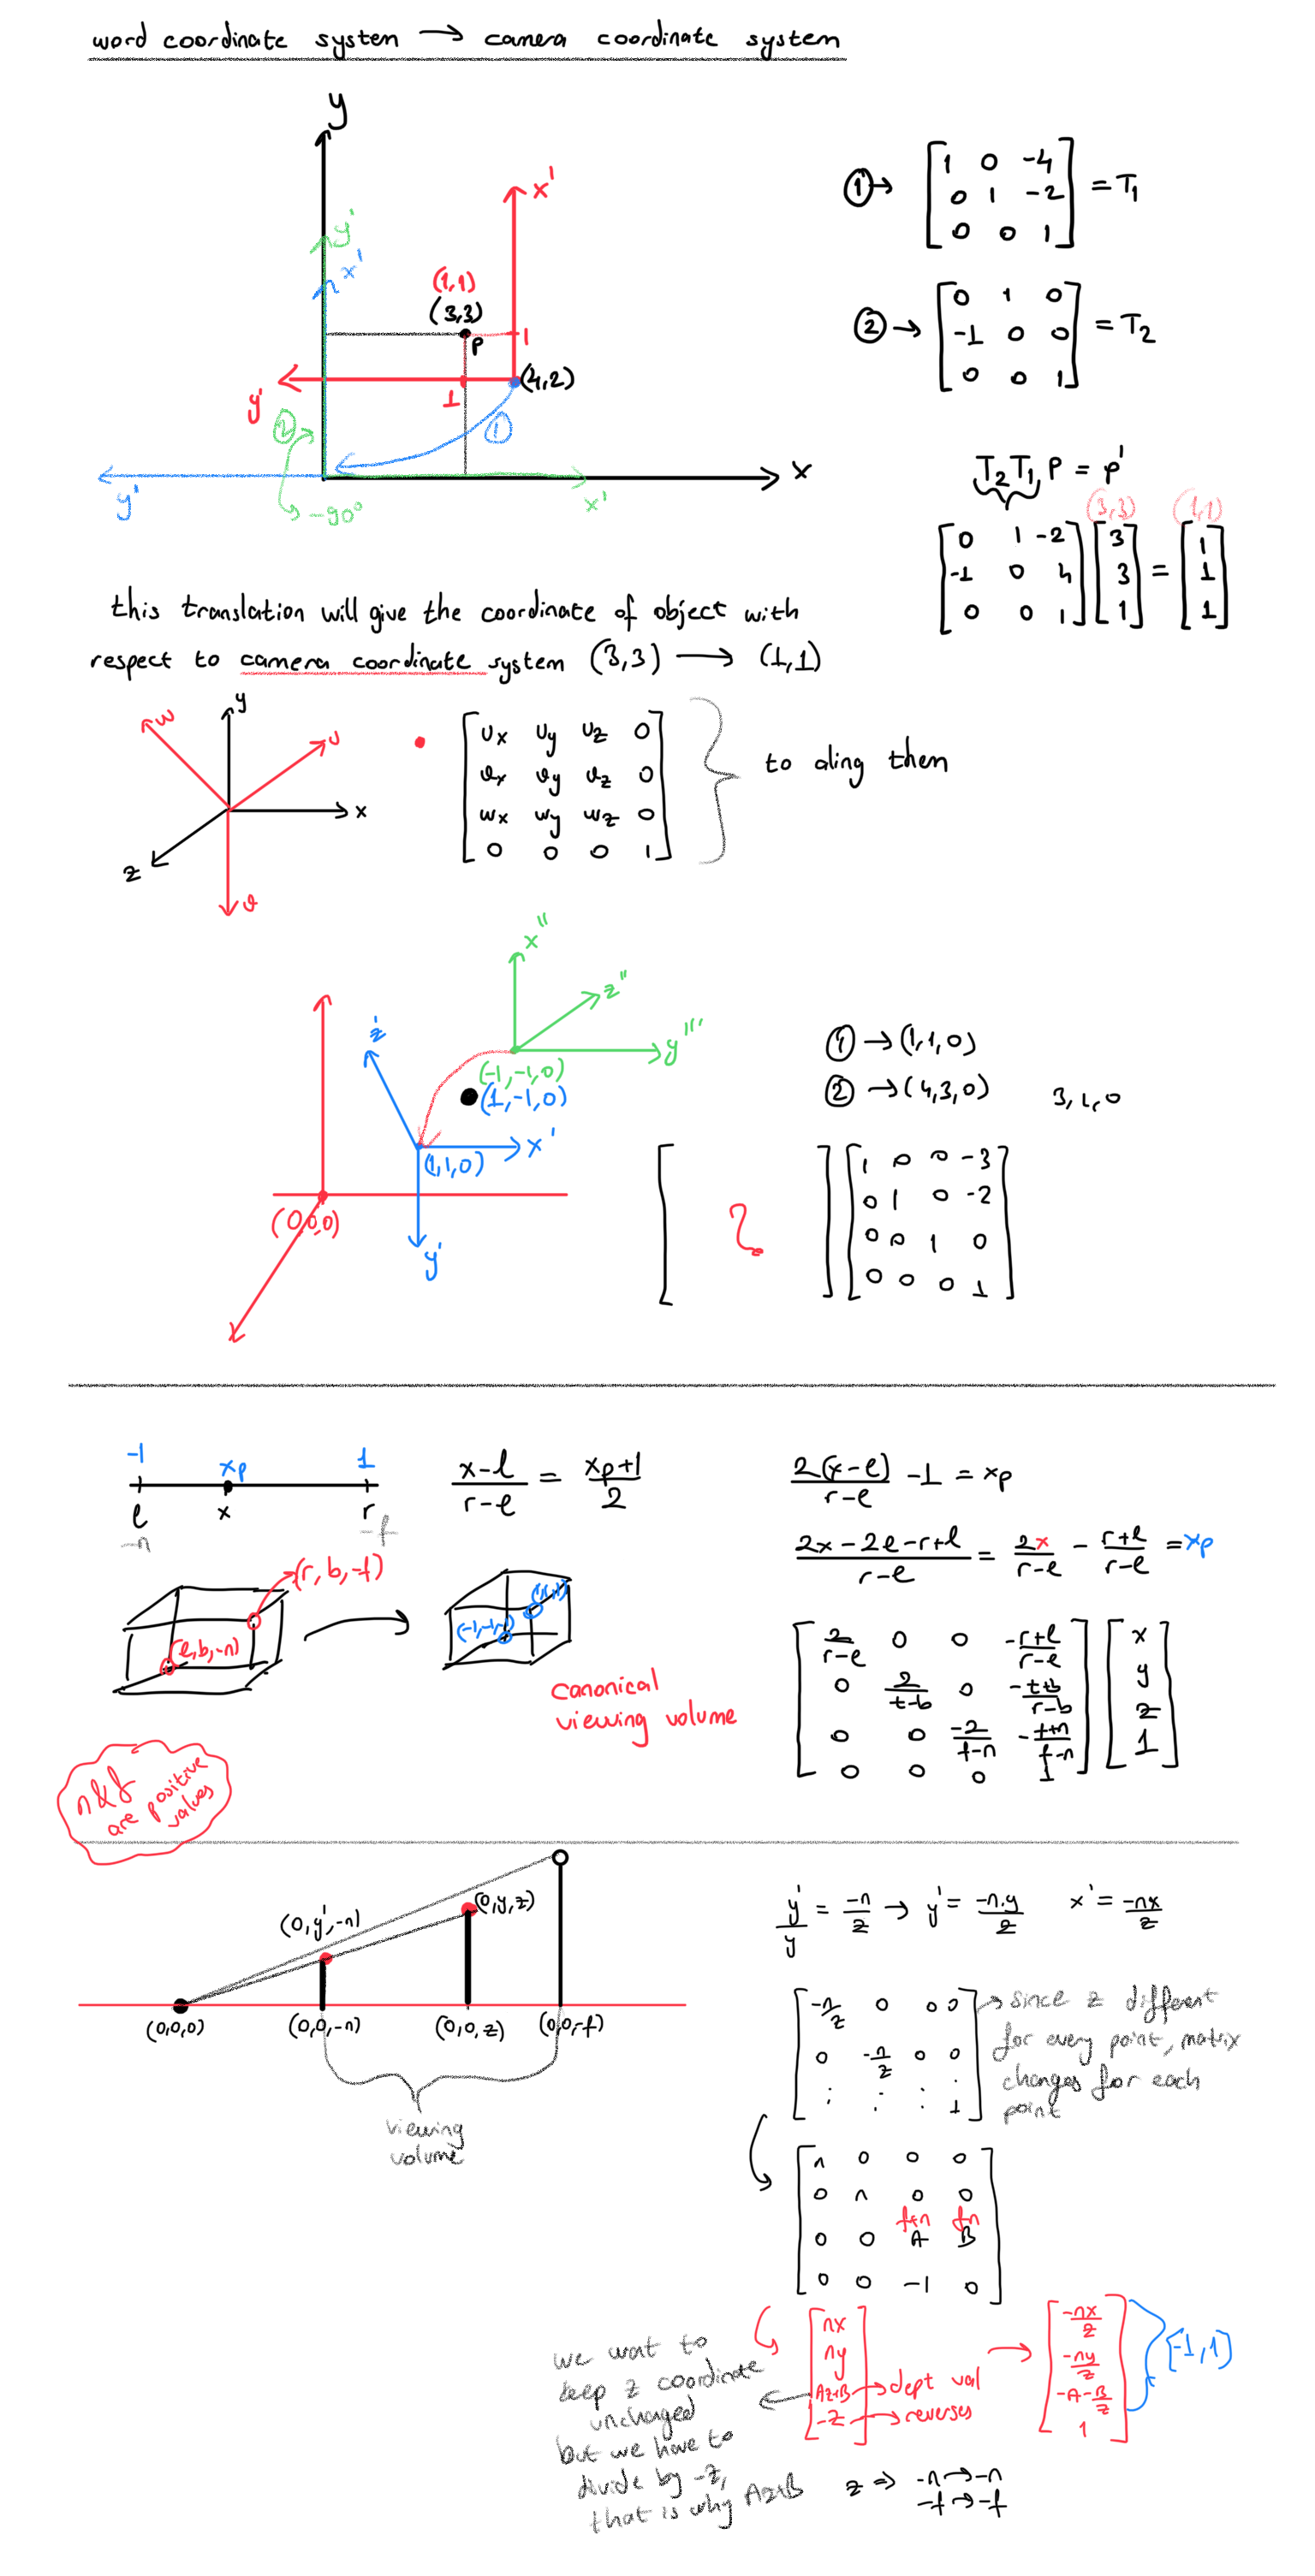 word coordinate system → camera coordinate system
y
x'
y'
x'
(1,1)
(3,3)
P
1
(4,2)
y'
1
②
①
x
y'
-90°
x'
①→ [1 0 -4
0 1 -2
0 0 1] = T₁
②→ [0 1 0
-1 0 0
0 0 1] = T₂
T₂T₁ P = P'
(3,3) (1,1)
[0 1 -2
-1 0 4
0 0 1] [3
3
1] = [1
1
1]
this translation will give the coordinate of object with
respect to camera coordinate system (3,3) → (1,1)
w
y
u
x
z
v
[Ux Uy Uz 0
Vx Vy Vz 0
Wx Wy Wz 0
0 0 0 1]
to aling then
x''
z''
y'''
z'
(-1,-1,0)
(1,-1,0)
x'
(1,1,0)
(0,0,0)
y'
① → (1,1,0)
② → (4,3,0)
3,1,0
[ ? ] [1 0 0 -3
0 1 0 -2
0 0 1 0
0 0 0 1]
-1 xp 1
l x r
-n -f
(x-l)/(r-l) = (xp+1)/2
2(x-l)/(r-l) -1 = xp
(2x-2l-r+l)/(r-l) = 2x/(r-l) - (r+l)/(r-l) = xp
(r, b, -f)
(l, b, -n)
(1,1,1)
(-1,-1,-1)
canonical
viewing volume
[2/(r-l) 0 0 -(r+l)/(r-l)
0 2/(t-b) 0 -(t+b)/(r-b)
0 0 -2/(f-n) -(f+n)/(f-n)
0 0 0 1] [x
y
z
1]
n&f
are positive
values
(0,y',-n)
(0,y,z)
(0,0,0)
(0,0,-n)
(0,0,z)
(0,0,-f)
viewing
volume
y'/y = -n/z → y' = -n.y/z x' = -nx/z
[-n/z 0 0 0
0 -n/z 0 0
: : : :
1]
since z different
for every point, matrix
changes for each
point
[n 0 0 0
0 n 0 0
f+n fn
0 0 A B
0 0 -1 0]
[nx
ny
Az+B → dept val
-z → reverses
[-nx/z
-ny/z
-A-B/z
1]
[-1,1]
we wat to
keep z coordinate
unchaged
but we have to
divide by -z,
that is why Az+B
z ⇒ -n → -n
-f → -f